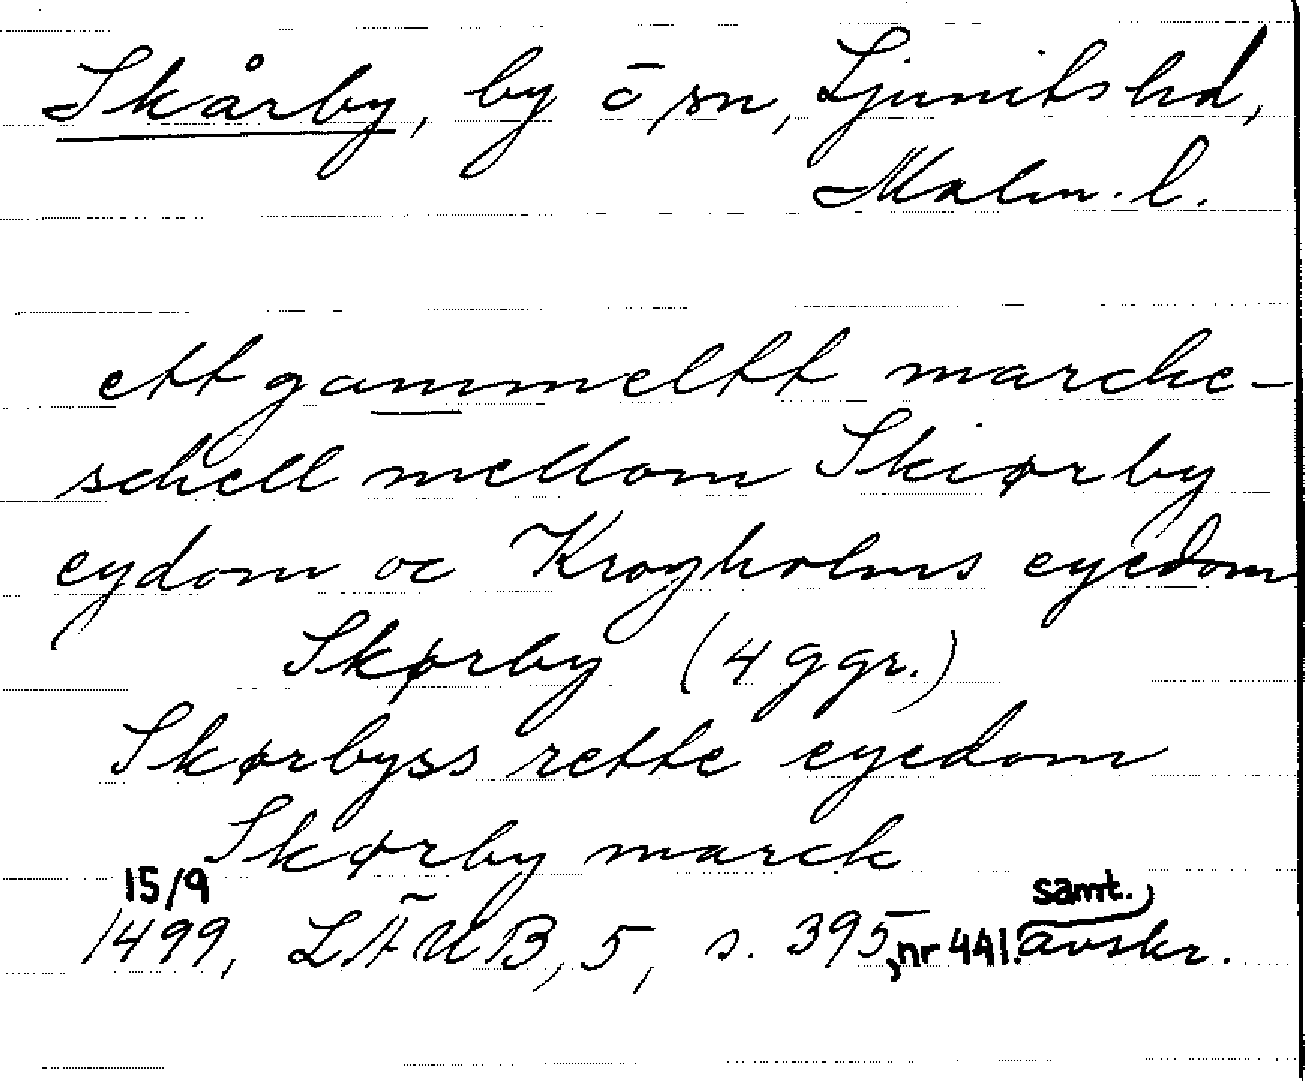 Skårby, by o sn, Ljunits hd,
Malm. l.
ett gammeltt marcke-
schell mellom Skiørby
eydom oc Krogholms eyedom
Skørby (4 ggr.)
Skørbyss rette eyedom
Skørby marck
15/9 samt.
1499, LÄUB, 5, s. 395, nr 441. avskr.